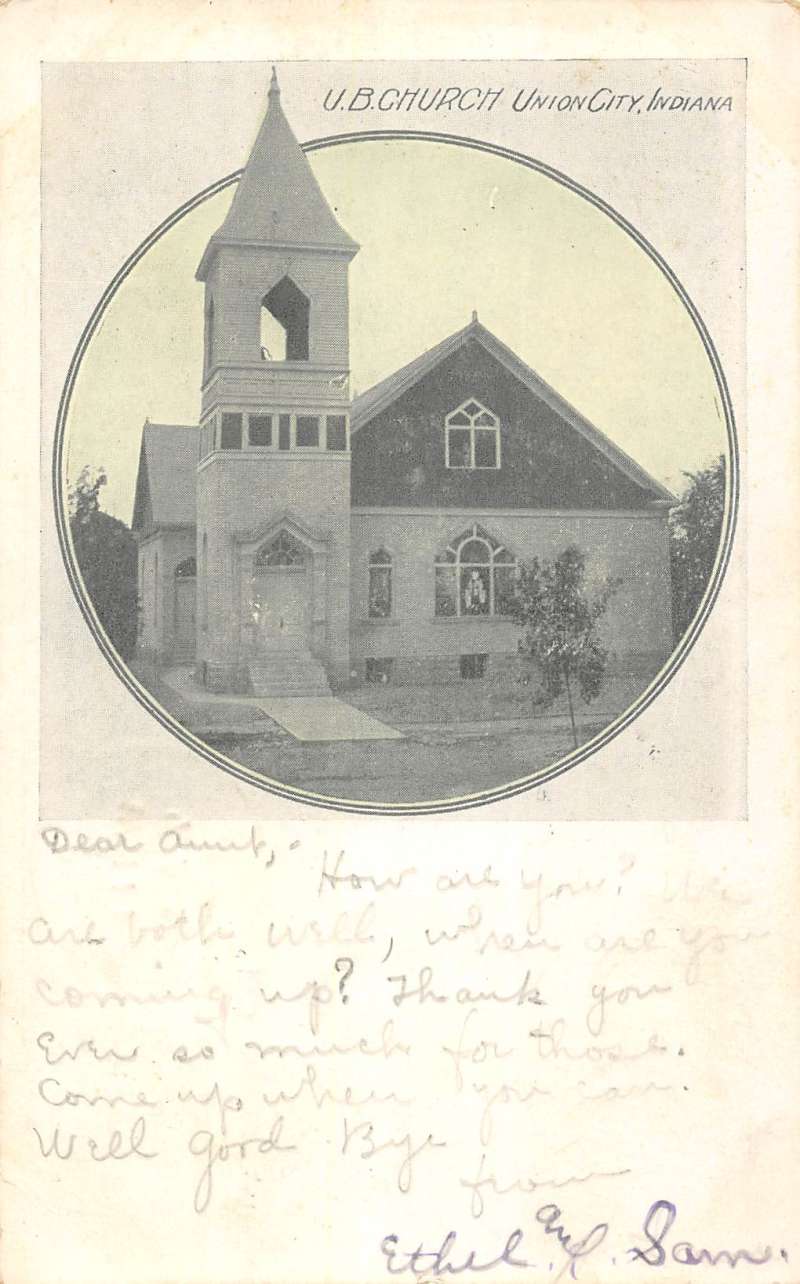 U.B. CHURCH UNION CITY, INDIANA
Dear Aunt,
How are you? We
are both well, when are you
coming up? Thank you
Ever so much for those.
Come up when you can.
Well Good Bye
from
Ethel and Sam.